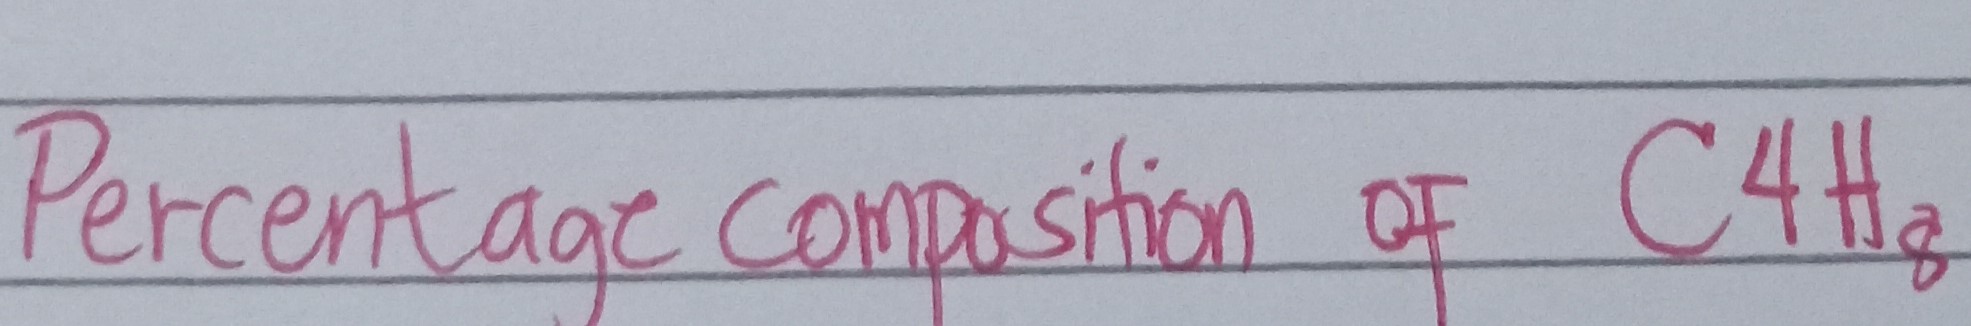 Percentage composition of C4H₈